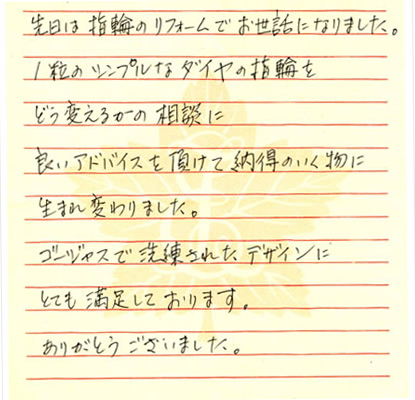 先日は指輪のリフォームでお世話になりました。
1粒のシンプルなダイヤの指輪を
どう変えるかの相談に
良いアドバイスを頂けて納得のいく物に
生まれ変わりました。
ゴージャスで洗練されたデザインに
とても満足しております。
ありがとうございました。